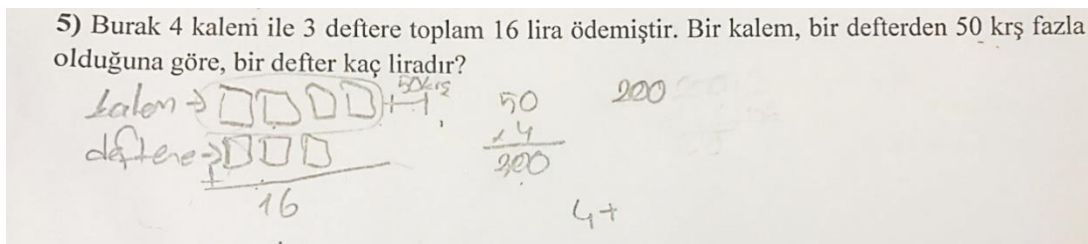 5) Burak 4 kalem ile 3 deftere toplam 16 lira ödemiştir. Bir kalem, bir defterden 50 krş fazla
olduğuna göre, bir defter kaç liradır?
kalem → 50krş
deftere →
+
16
50
x 4
200
200
4+